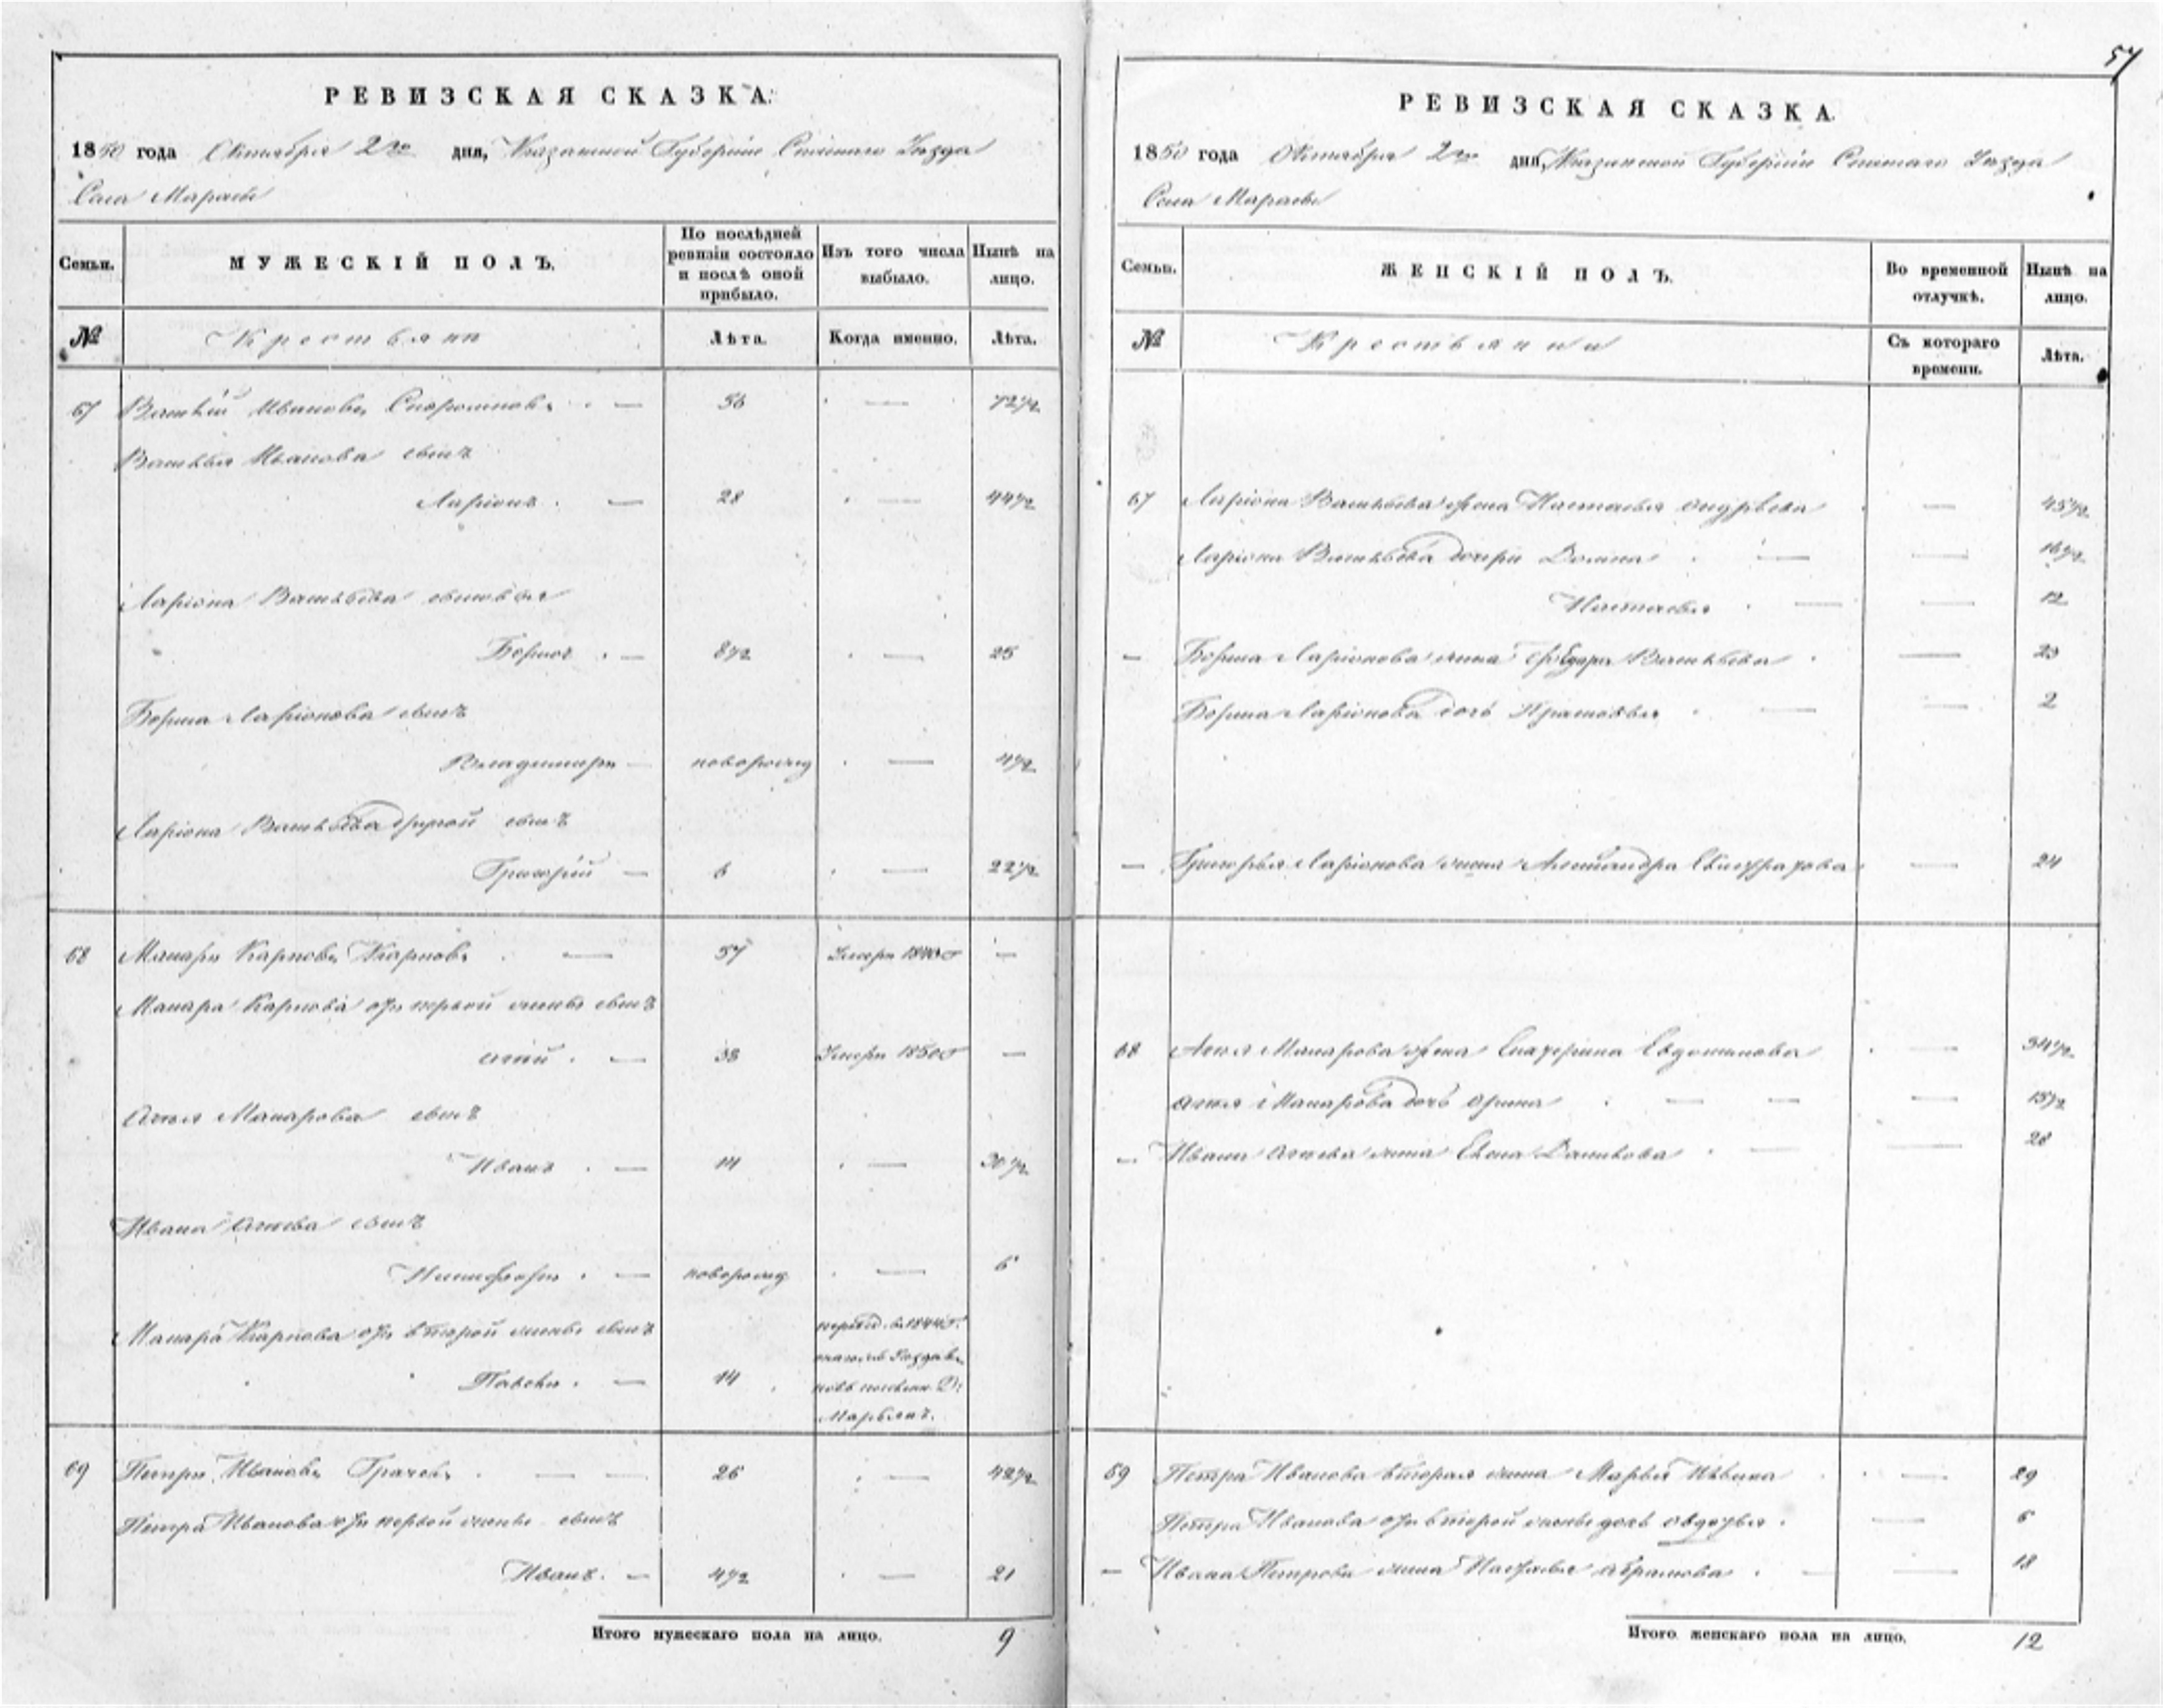 РЕВИЗСКАЯ СКАЗКА.
1850 года Октября 2го дня, Казанской Губерніи Спаскаго Уѣзда
Села
Семьи.
МУЖЕСКІЙ ПОЛЪ.
По послѣдней ревизіи состояло и послѣ оной прибыло.
Изъ того числа выбыло.
Нынѣ на лицо.
№
Крестьяне
Лѣта.
Когда именно.
Лѣта.
67 Василій Ивановъ — 56 — 72½
Василья Иванова сынъ
Ларіонъ. — 28 — 44½
Ларіона Васильева сыновья
Борисъ. — 8½ — 25
Бориса Ларіонова сынъ
Владимиръ — новорожд — 4½
Ларіона Васильева другой сынъ
Григорій — 6 — 22½
68 Макаръ Карповъ Карповъ — 57 Умеръ —
Макара Карпова отъ первой жены сынъ
Агѣй. — 38 Умеръ 1850 —
Агѣя Макарова сынъ
Иванъ. — 14 — 30½
Ивана Агѣева сынъ
Никифоръ. — новорожд — 6
Макара Карпова отъ второй жены сынъ
Павелъ. — 14
69 Петръ Ивановъ Грачевъ. — 26 — 42½
Петра Иванова отъ первой жены сынъ
Иванъ. — 4½ — 21
Итого мужескаго пола на лицо. 9
57
РЕВИЗСКАЯ СКАЗКА.
1850 года Октября 2го дня, Казанской Губерніи Спаскаго Уѣзда
Села
Семьи.
ЖЕНСКІЙ ПОЛЪ.
Во временной отлучкѣ.
Нынѣ на лицо.
№
Крестьянки
Съ котораго времени.
Лѣта.
67 Ларіона Васильева жена Настасья Андрѣева — 45½
Ларіона Васильева дочери Домна — 16½
Настасья — 12
— Бориса Ларіонова жена Федора Васильева — 23
Бориса Ларіонова дочь — 2
— Григорья Ларіонова жена Александра — 24
68 Агѣя Макарова жена Екатерина Евдокимова — 54½
Агѣя Макарова дочь Арина — 15½
— Ивана Агѣева жена Елена Данилова — 28
69 Петра Иванова вторая жена Марья — 29
Петра Иванова отъ второй жены дочь Авдотья. — 6
— Ивана Петрова жена Настасья Абрамова. — 18
Итого женскаго пола на лицо. 12